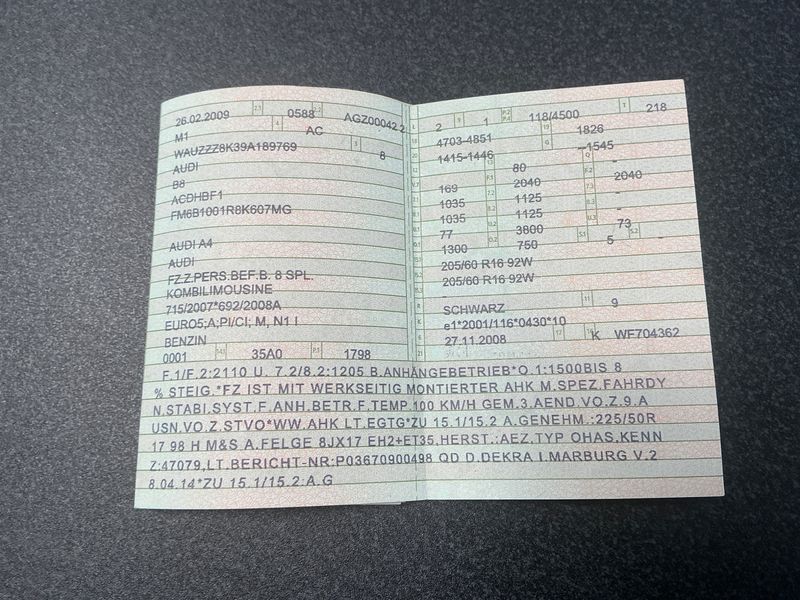 26.02.2009 2.1 0588 2.2 AGZ00042 2
M1 4 AC
WAUZZZ8K39A189769 3 8
AUDI
B8
ACDHBF1
FM6B1001R8K607MG
AUDI A4
AUDI
FZ.Z.PERS.BEF.B. 8 SPL.
KOMBILIMOUSINE
715/2007*692/2008A
EURO5;A;PI/CI; M, N1 I
BENZIN
0001 14.1 35A0 P.1 1798
L 2 9 1 P.2 P.4 118/4500 T 218
18 4703-4851 19 1826
20 1415-1446 G —1545
80 -
169 F.1 2040 F.2 2040
1035 7.2 1125 7.3 -
1035 8.2 1125 8.3 -
77 3800 U.3 73
1300 O.2 750 S.1 5 S.2 -
205/60 R16 92W
205/60 R16 92W
-
SCHWARZ 11 9
e1*2001/116*0430*10
27.11.2008 17 K WF704362
21
F.1/F.2:2110 U. 7.2/8.2:1205 B.ANHÄNGEBETRIEB*O.1:1500BIS 8
% STEIG.*FZ IST MIT WERKSEITIG MONTIERTER AHK M.SPEZ.FAHRDY
N.STABI.SYST.F.ANH.BETR.F.TEMP.100 KM/H GEM.3.AEND.VO.Z.9.A
USN.VO.Z.STVO*WW.AHK LT.EGTG*ZU 15.1/15.2 A.GENEHM.:225/50R
17 98 H M&S A.FELGE 8JX17 EH2+ET35,HERST.:AEZ,TYP OHAS,KENN
Z:47079,LT.BERICHT-NR:P03670900498 QD D.DEKRA I.MARBURG V.2
8.04.14*ZU 15.1/15.2:A.G